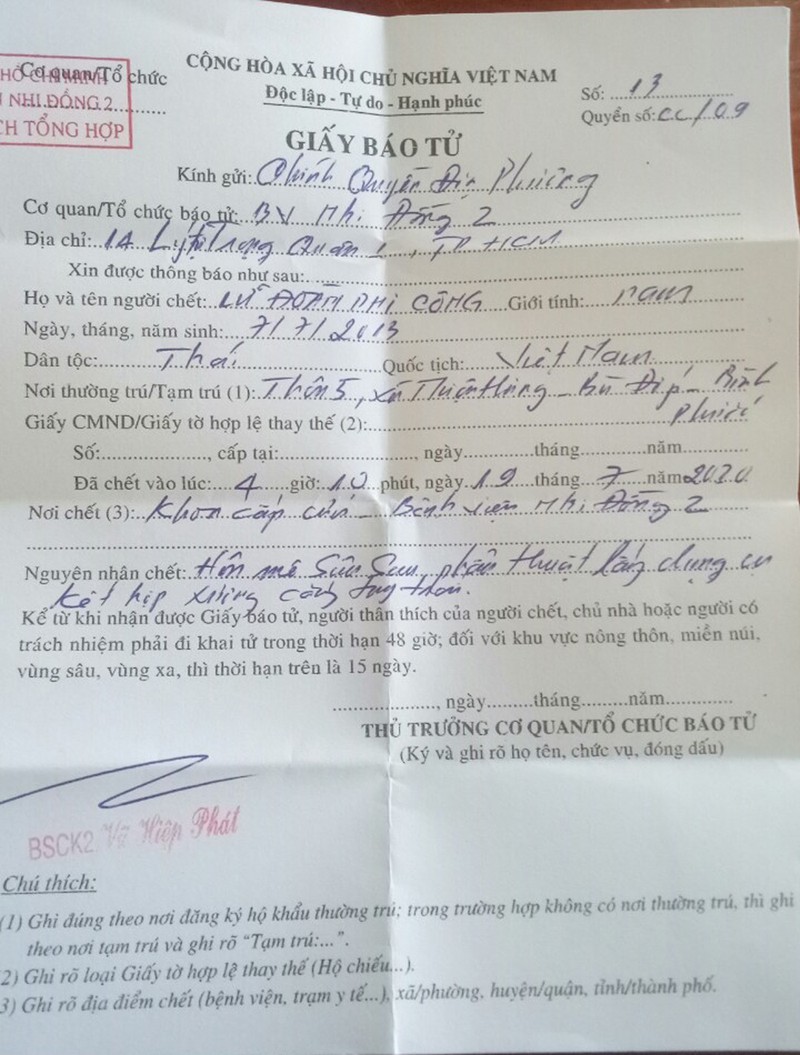 HỒ CHÍ MINH
Cơ quan/Tổ chức
NHI ĐỒNG 2
CH TỔNG HỢP
CỘNG HÒA XÃ HỘI CHỦ NGHĨA VIỆT NAM
Độc lập - Tự do - Hạnh phúc
Số: 13
Quyển số: CC/09
GIẤY BÁO TỬ
Kính gửi: Chính Quyền Địa Phương
Cơ quan/Tổ chức báo tử: BV Nhi Đồng 2
Địa chỉ: 14 Lý Tự Trọng Quận 1, TP HCM
Xin được thông báo như sau:
Họ và tên người chết: ĐOÀN PHI CÔNG Giới tính: nam
Ngày, tháng, năm sinh: 7/7/2013
Dân tộc: Thái Quốc tịch: Việt Nam
Nơi thường trú/Tạm trú (1): Thôn 5, xã - Bù Đốp - Bình
Phước
Giấy CMND/Giấy tờ hợp lệ thay thế (2):
Số:, cấp tại:, ngày tháng năm
Đã chết vào lúc: 4 giờ: 10 phút, ngày 19 tháng 7 năm 2020
Nơi chết (3): Khoa cấp cứu - Bệnh viện Nhi Đồng 2
Nguyên nhân chết: Hôn mê sâu sau phẫu thuật dụng cụ
kết hợp xương
Kể từ khi nhận được Giấy báo tử, người thân thích của người chết, chủ nhà hoặc người có
trách nhiệm phải đi khai tử trong thời hạn 48 giờ; đối với khu vực nông thôn, miền núi,
vùng sâu, vùng xa, thì thời hạn trên là 15 ngày.
, ngày tháng năm
THỦ TRƯỞNG CƠ QUAN/TỔ CHỨC BÁO TỬ
(Ký và ghi rõ họ tên, chức vụ, đóng dấu)
BSCK2. Võ Hiệp Phát
Chú thích:
(1) Ghi đúng theo nơi đăng ký hộ khẩu thường trú; trong trường hợp không có nơi thường trú, thì ghi
theo nơi tạm trú và ghi rõ “Tạm trú:...”.
2) Ghi rõ loại Giấy tờ hợp lệ thay thế (Hộ chiếu...).
3) Ghi rõ địa điểm chết (bệnh viện, trạm y tế...), xã/phường, huyện/quận, tỉnh/thành phố.